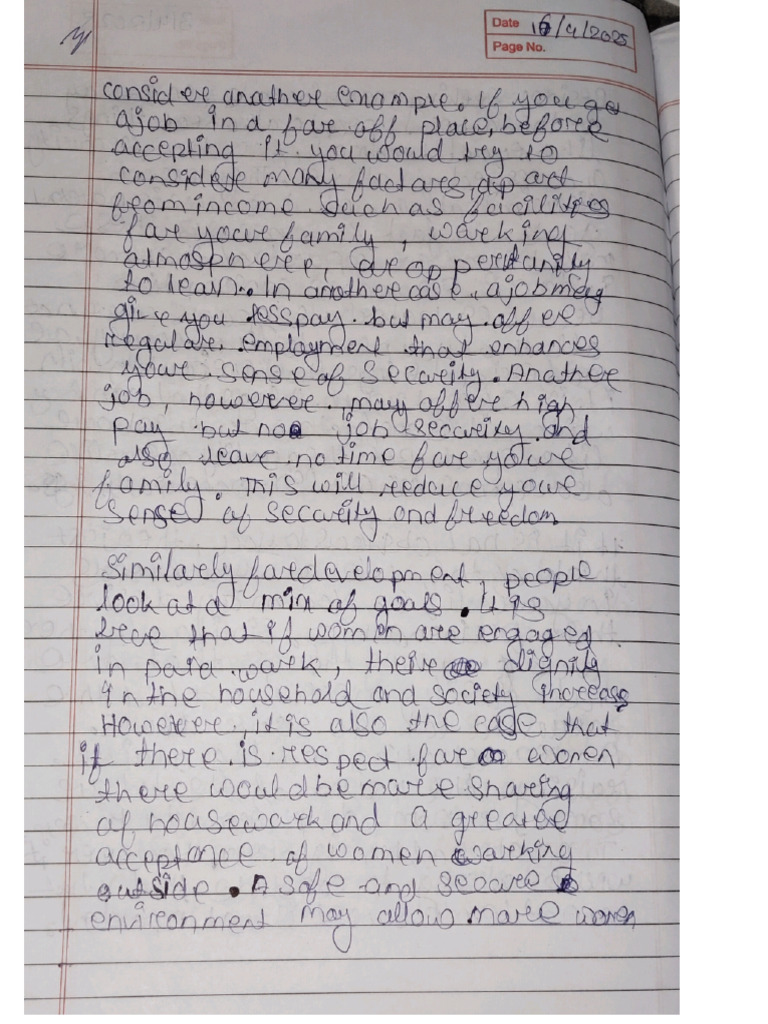 Date 16/4/2025
Page No.
consider another example. If you ge
a job in a far off place, before
accepting it you would try to
consider many factors, apart
from income such as facilities
for your family, working
atmosphere, or opportunity
to learn. In another case, a job may
give you less pay but may offer
regular employment that enhances
your sense of security. Another
job, however may offer high
pay but no job security and
also leave no time for your
family. This will reduce your
sense of security and freedom
Similarly for development, people
look at a mix of goals. It is
true that if women are engaged
in paid work, their dignity
in the household and society increases
However, it is also the case that
if there is respect for women
there would be more sharing
of housework and a greater
acceptance of women working
outside. A safe and secure
environment may allow more women